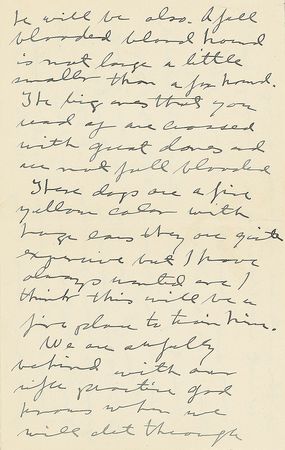 he will be also. A full
blooded blood hound
is not large a little
smaller than a fox hound.
The big ones that you
read of are crossed
with great danes and
are not full blooded
These dogs are a fine
yellow color with
huge ears they are quite
expensive but I have
always wanted one I
think this will be a
fine place to train him.
We are awfully
behind with our
rifle practice god
knows when we
will get through